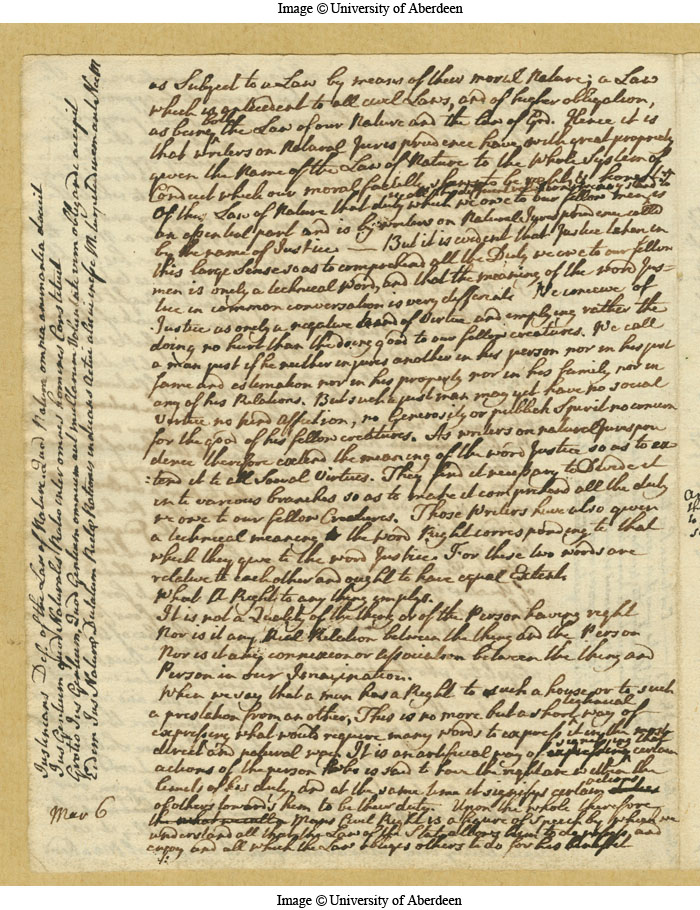 Image © University of Aberdeen
as Subject to a Law by means of their moral Nature; a Law
which is antecedent to all civil Laws, and of higher obligation,
as being both the Law of our Nature and the Law of God. Hence it is
that writers on Natural Jurisprudence have with great propriety
given the Name of the Law of Nature to the whole System of
Conduct which our moral faculty shews to be right & honest
Of the Law of Nature that duty which we owe to our fellow men is
an essential part and is by writers on Natural Jurisprudence called
by the name of Justice — But it is evident that Justice taken in
this large Sense so as to comprehend all the Duty we owe to our fellow
men is only a technical word, and that the meaning of the word Jus-
tice in common conversation is very different. We conceive of
Justice as only a negative kind of Virtue and implying rather the
doing no hurt than the doing good to our fellow creatures. We call
a man just if he neither injures another in his person nor in his just
fame and estimation nor in his property nor in his family nor in
any of his Relations. But such a just man may yet have no social
Virtue no kind affection, no Generosity or publick Spirit no concern
for the good of his fellow creatures. As writers on natural Jurispru
dence therefore extend the meaning of the word Justice so as to ex
:tend it to all Social Virtues. They find it necessary to Divide it
into various branches so as to make it comprehend all the duty
we owe to our fellow Creatures. Those Writers have also given
a technical meaning to the word Right corresponding to that
which they give to the word Justice. For these two words are
relative to each other and ought to have equal Extent.
What A Right to any thing implys.
It is not a Quality of the thing or of the Person having right
Nor is it any Real Relation between the thing and the Person
Nor is it any connexion or association between the thing and
Person in our Imagination.
When we say that a man has a Right to such a house or to such
a prestation from another, This is no more but a short technical way of
expressing what would require many words to express it in the most
direct and natural way. It is an artificial way of expressing signifying that certain
actions of the person who is said to have the right are within the
limits of his duty, and at the same time it signifys certain duties actions
of others towards him to be their duty. Upon the whole therefore
Mans Civil Right is a figure of Speech by which we
understand all that the Law of the State allows him to do possess and
enjoy and all which the Law obliges others to do for his benefit
Justinians Def. of the Law of Nature. Quod Natura omnia animantia docuit
Jus Gentium quod Naturalis Ratio inter omnes homines Constituit
Grotio Jus Gentium, Quod Gentium omnium aut multarum Voluntate vim obligandi accepit
Mar 6
Image © University of Aberdeen